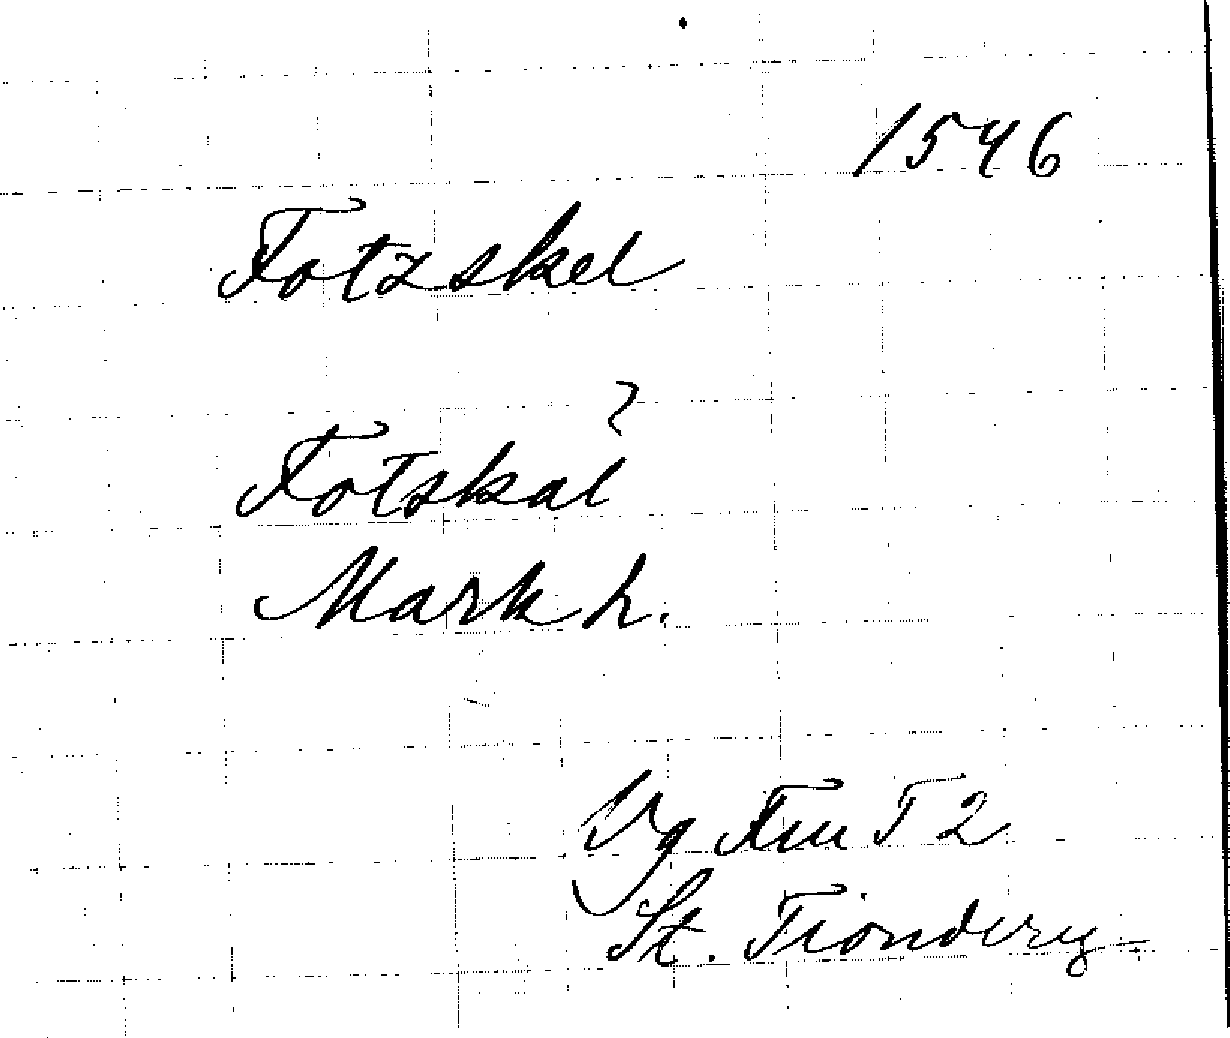 1546
Fotzskel
?
Fotskal
Mark h.
Vg Fru T 2
St. Tionderg